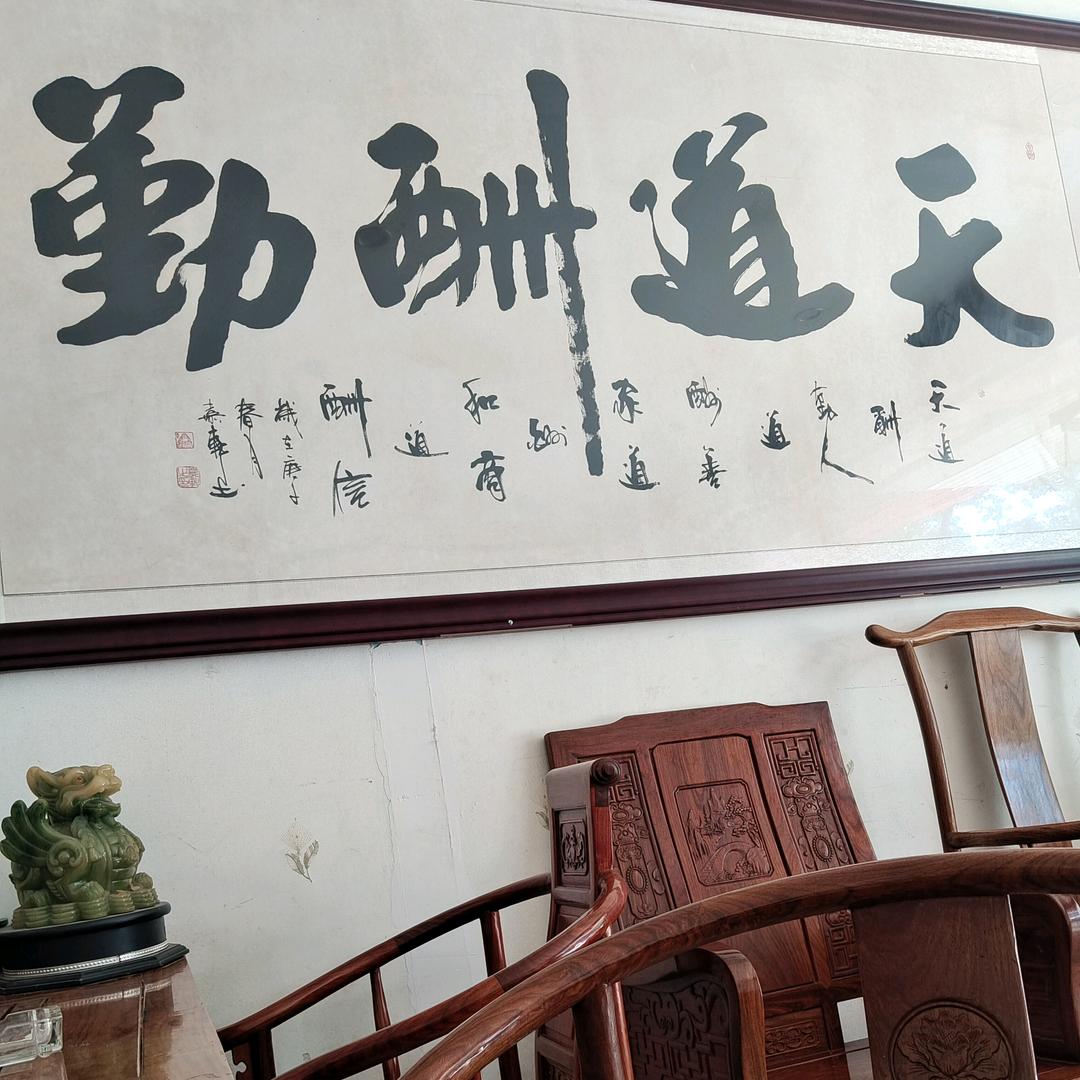 天道酬勤
天道
酬
勤人
道
酬善
家道
酬
和商
道
酬信
歲在庚子
春月